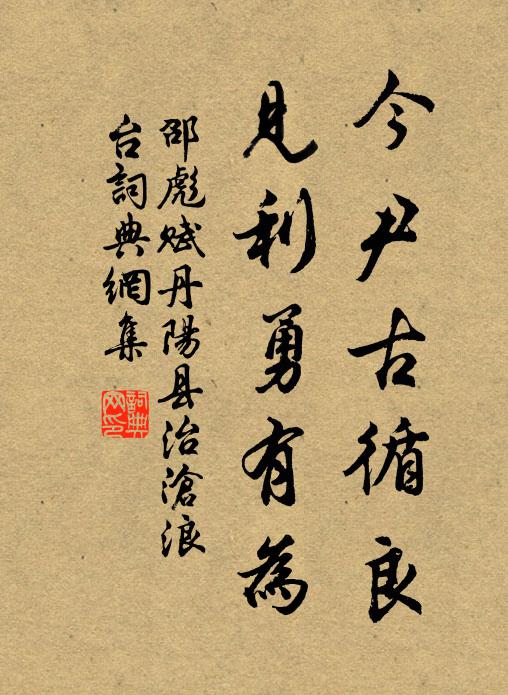 今尹古循良
見利勇有為
邵彪賦丹陽县治滄浪
台詞典網集
詞典網印